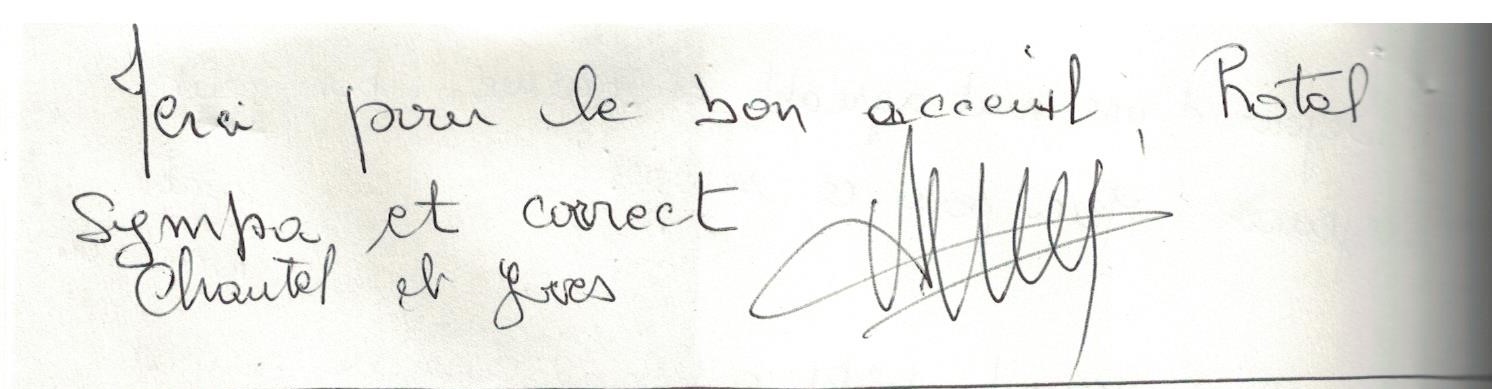 Merci pour le bon acceuil, hotel
sympa et correct
Chantal et Yves